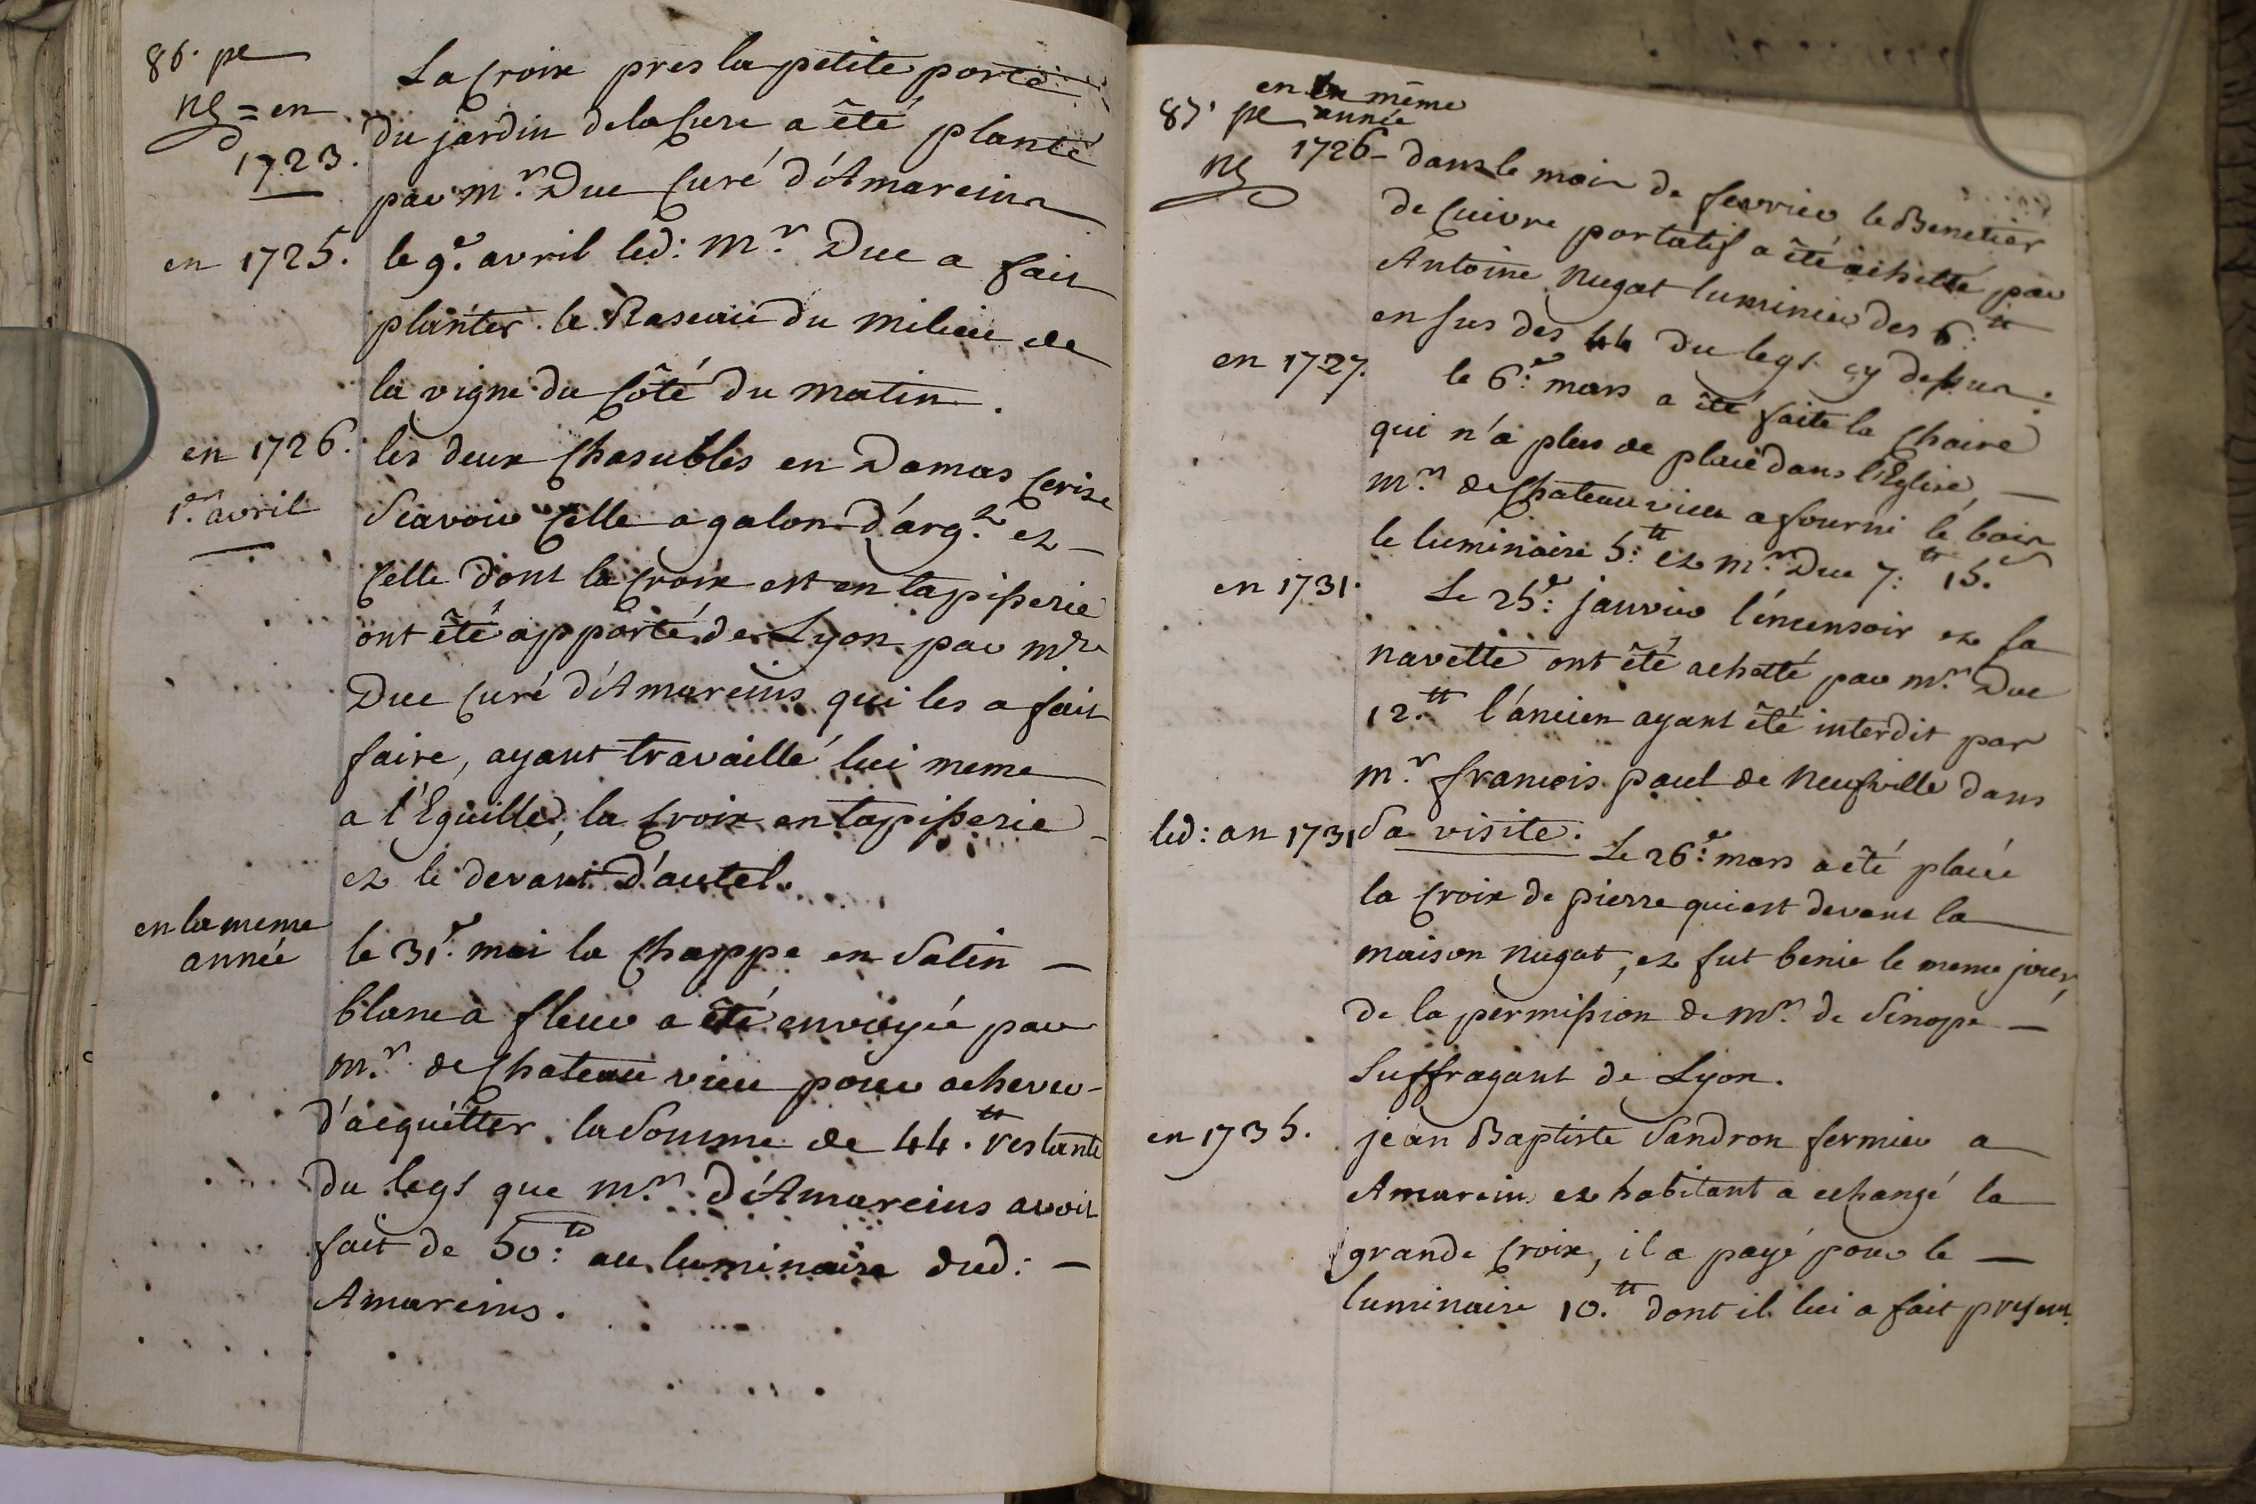 86.e pe
NB = en
1723.
La Croix pres la petite porte
du jardin de la Cure a êté planté
par m.r Duc Curé d'Amareins
en 1725.
le 9.e avril led: M.r Duc a fait
planter le Raseau du milieu de
la vigne du Côté du matin.
en 1726.
1.er avril
les deux Chasubles en Damas Cerise
Scavoir Celle a galon d'arg.t et
Celle dont la Croix est en tapisserie
ont êté apporté de Lyon par mr
Duc Curé d'Amareins qui les a fait
faire, ayant travaillé lui meme
a l'Eguille, la Croix en tapisserie
et le devant d'autel.
en la meme
année
le 31.e mai la Chappe en Satin
blanc a fleur a êté envoyée par
M.r de Chateau vieu pour achever
d'acquitter la Somme de 44.tt restante
du legs que M.r d'Amareins avoit
fait de 50:tt au luminaire dud:
Amareins.
87.e pe
NB
en la même
année
1726 - dans le mois de fevrier le Benetier
de Cuivre portatif a êté achetté par
Antoine Nugat luminier des 6:tt
en sus des 44 du legs cy dessus.
en 1727.
le 6:e mars a êté faite la Chaire
qui n'a plus de place dans l'Eglise,
M.r de Chateau vieu a fourni le bois
le luminaire 5:tt et M.r Duc 7:tt 15.s
en 1731.
Le 25:e janvier l'encensoir et sa
navette ont êté achetté par M.r Duc
12.tt l'ancien ayant êté interdit par
M.r francois paul de Neufville dans
Sa visite.
led: an 1731
Le 26:e mars a êté placée
la Croix de pierre qui est devant la
maison Nugat, et fut benie le meme jour,
de la permission de M.r de Sinope
Suffragant de Lyon.
en 1735.
jean Baptiste Sandron fermier a
Amareins et habitant a echangé la
grande Croix, il a payé pour le
luminaire 10.tt dont il lui a fait present.